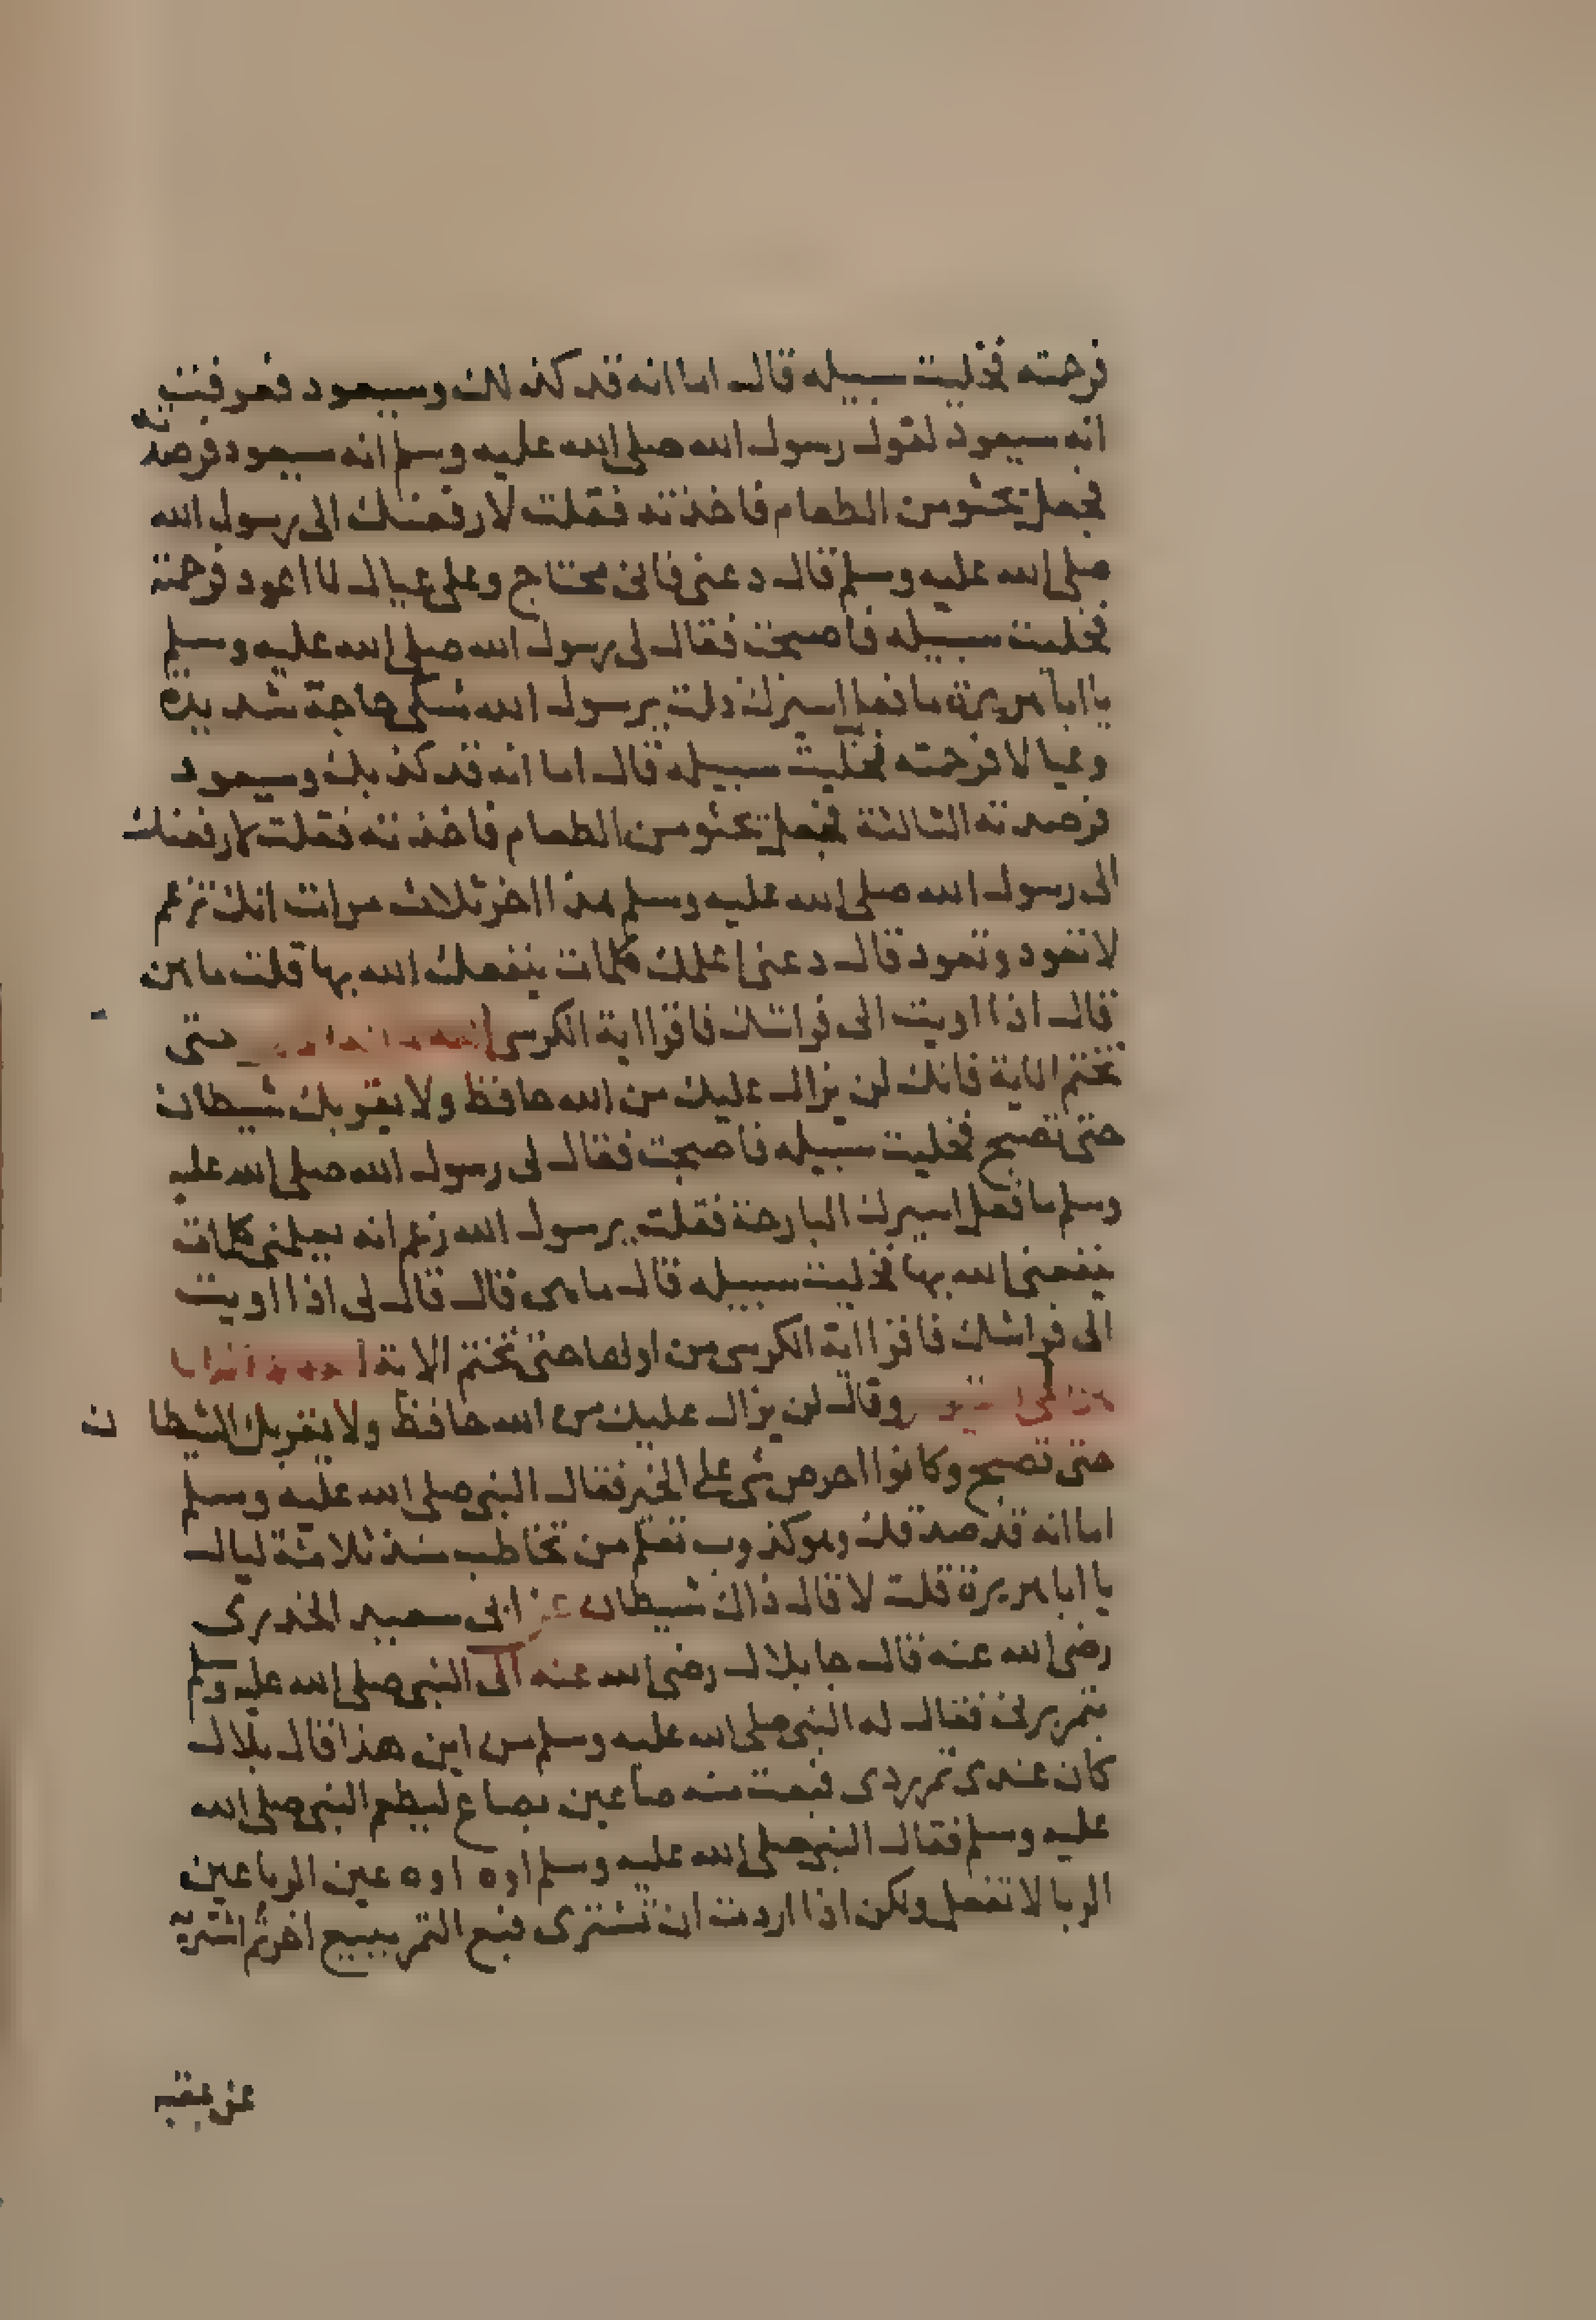 فرحمته فخليت سبيله قال اما انه قد كذلك وسيعود فعرفت
انه سيعود لقول رسول الله صلى الله عليه وسلم انه سيعود فرصد
فجعل يحثو من الطعام فاخذته فقلت لارفعنك الى رسول الله
صلى الله عليه وسلم قال دعنى فانى محتاج وعلى عيال لا اعود فرحمته
فخليت سبيله فاصبحت فقال لى رسول الله صلى الله عليه وسلم
يا ابا هريرة ما فعل اسيرك قلت يرسول الله شكى حاجة شديدة
وعيالا فرحمته فخليت سبيله قال اما انه قد كذبك وسيعود
فرصدته الثالثة فجعل يحثو من الطعام فاخذته فقلت لارفعنك
الى رسول الله صلى الله عليه وسلم هذا اخر ثلاث مرات انك تزعم
لا تعود وتعود قال دعنى اعلمك كلمات ينفعك الله بها قلت ما هن
قال اذا اويت الى فراشك فاقرا اية الكرسى حتى
تختم الاية فانك لن يزال عليك من الله حافظ ولا يقربك شيطان
حتى تصبح فخليت سبيله فاصبحت فقال لى رسول الله صلى الله عليه
وسلم ما فعل اسيرك البارحة فقلت يرسول الله زعم انه يعلمنى كلمات
ينفعنى الله بها فخليت سبيله قال ما هى قال قال لى اذا اويت
الى فراشك فاقرا اية الكرسى من اولها حتى تختم الاية
وقال لن يزال عليك من الله حافظ ولا يقربك الشيطان
حتى تصبح وكانوا احرص شى على الخير فقال النبى صلى الله عليه وسلم
اما انه قد صدقك وهو كذوب تعلم من تخاطب منذ ثلاثة ليال
يا ابا هريرة قلت لا قال ذاك شيطان عن ابى سعيد الخدرى
رضى الله عنه قال جا بلال رضى الله عنه الى النبى صلى الله عليه وسلم
بتمر برنى فقال له النبى صلى الله عليه وسلم من اين هذا قال بلال
كان عندى تمر ردى فبعت منه صاعين بصاع ليطعم النبى صلى الله
عليه وسلم فقال النبى صلى الله عليه وسلم اوه اوه عين الربا عين
الربا لا تفعل ولكن اذا اردت ان تشترى فبع التمر ببيع اخر ثم اشتر
عن عقبه